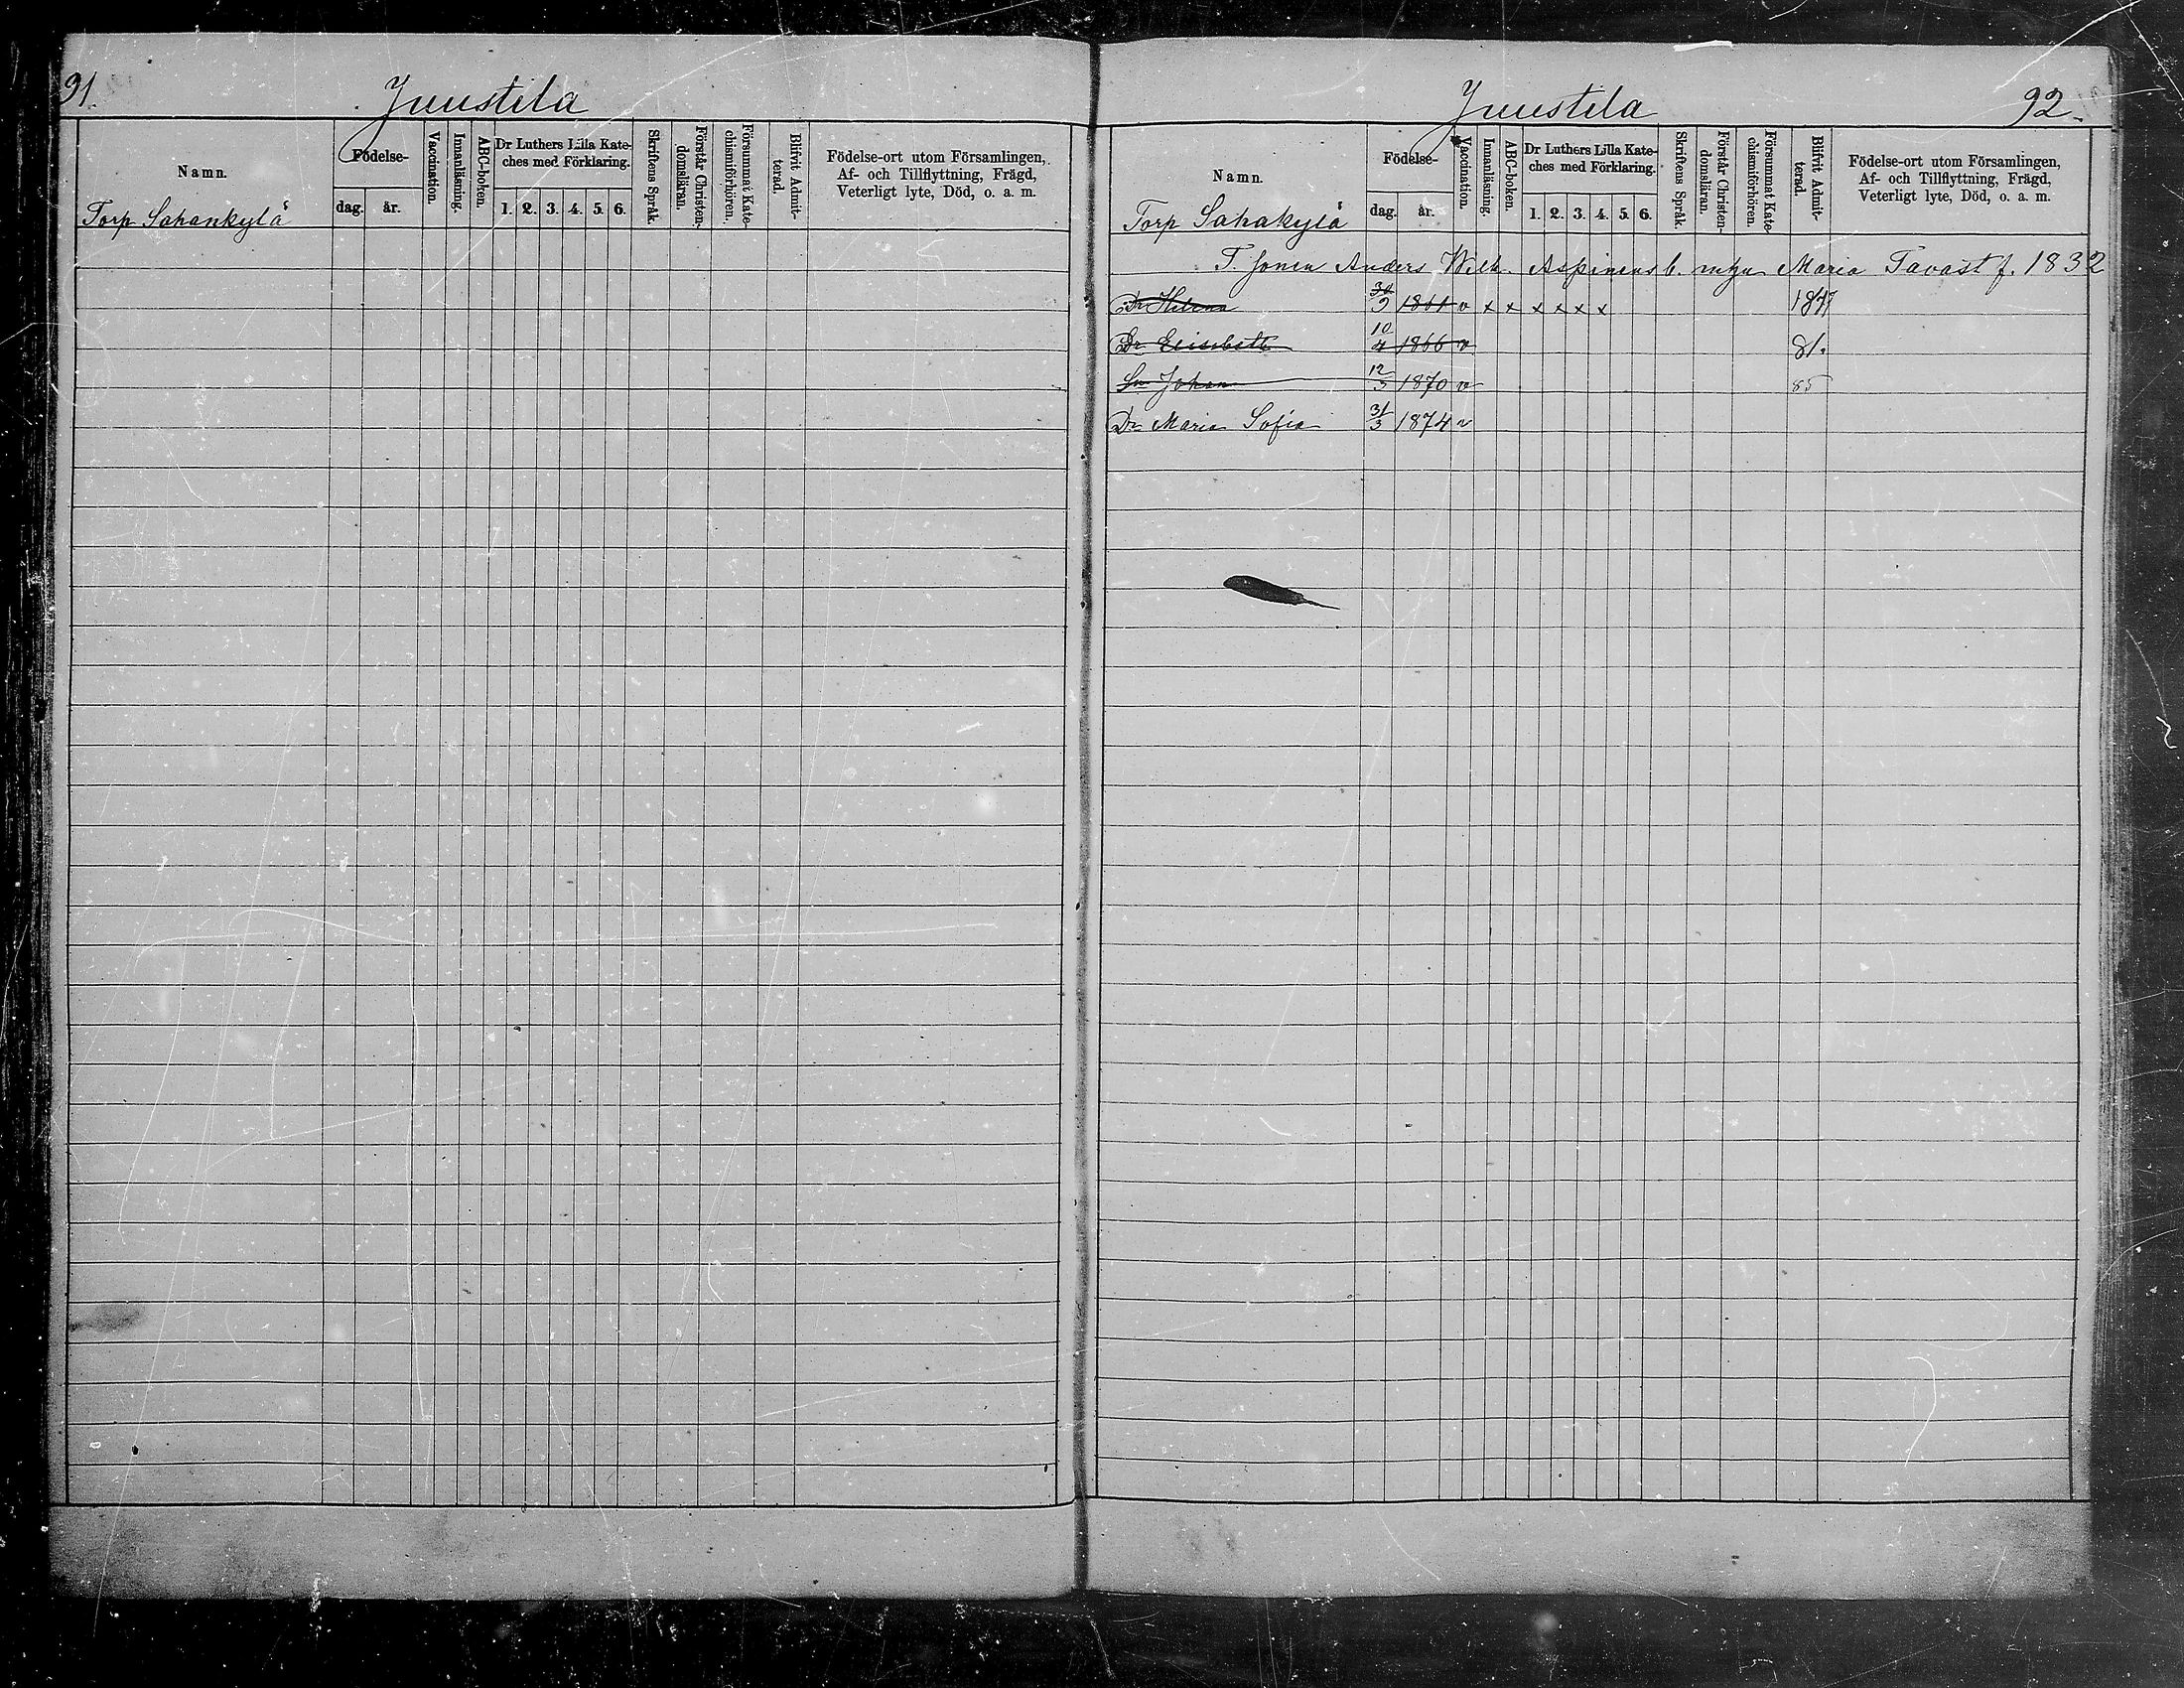 91.
Juustila
Namn.
Födelse-
dag.
år.
Vaccination.
Innanläsning.
ABC-boken.
Dr Luthers Lilla Kate-
ches med Förklaring.
1. 2. 3. 4. 5. 6.
Skriftens Språk.
Förstår Christen-
domsläran.
Försummat Kate-
chismiförhören.
Blifvit Admit-
terad.
Födelse-ort utom Församlingen,
Af- och Tillflyttning, Frägd,
Veterligt lyte, Död, o. a. m.
Torp Sahankylä
Juustila
92.
Namn.
Födelse-
dag.
år.
Vaccination.
Innanläsning.
ABC-boken.
Dr Luthers Lilla Kate-
ches med Förklaring.
1. 2. 3. 4. 5. 6.
Skriftens Språk.
Förstår Christen-
domsläran.
Försummat Kate-
chismiförhören.
Blifvit Admit-
terad.
Födelse-ort utom Församlingen,
Af- och Tillflyttning, Frägd,
Veterligt lyte, Död, o. a. m.
Torp Sahakylä
Anders Wilh. Aspinens b. Maria Tavast f. 1832
Dr Helena 30/9 1861 v x x x x x x
Dr Elisabeth 10/4 1866 v 81.
Sn Johan 12/5 1870 v 85
Dr Maria Sofia 31/3 1874 v